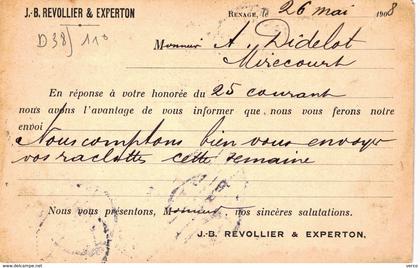 J.-B. REVOLLIER & EXPERTON
RENAGE, le 26 mai 1908
D38) 110
Monsieur A. Didelot
Mirecourt
En réponse à votre honorée du 25 courant
nous avons l'avantage de vous informer que nous vous ferons notre
envoi
Nous comptons bien vous envoyer
vos raclettes cette semaine
Nous vous présentons, Monsieur, nos sincères salutations.
J.-B. REVOLLIER & EXPERTON.